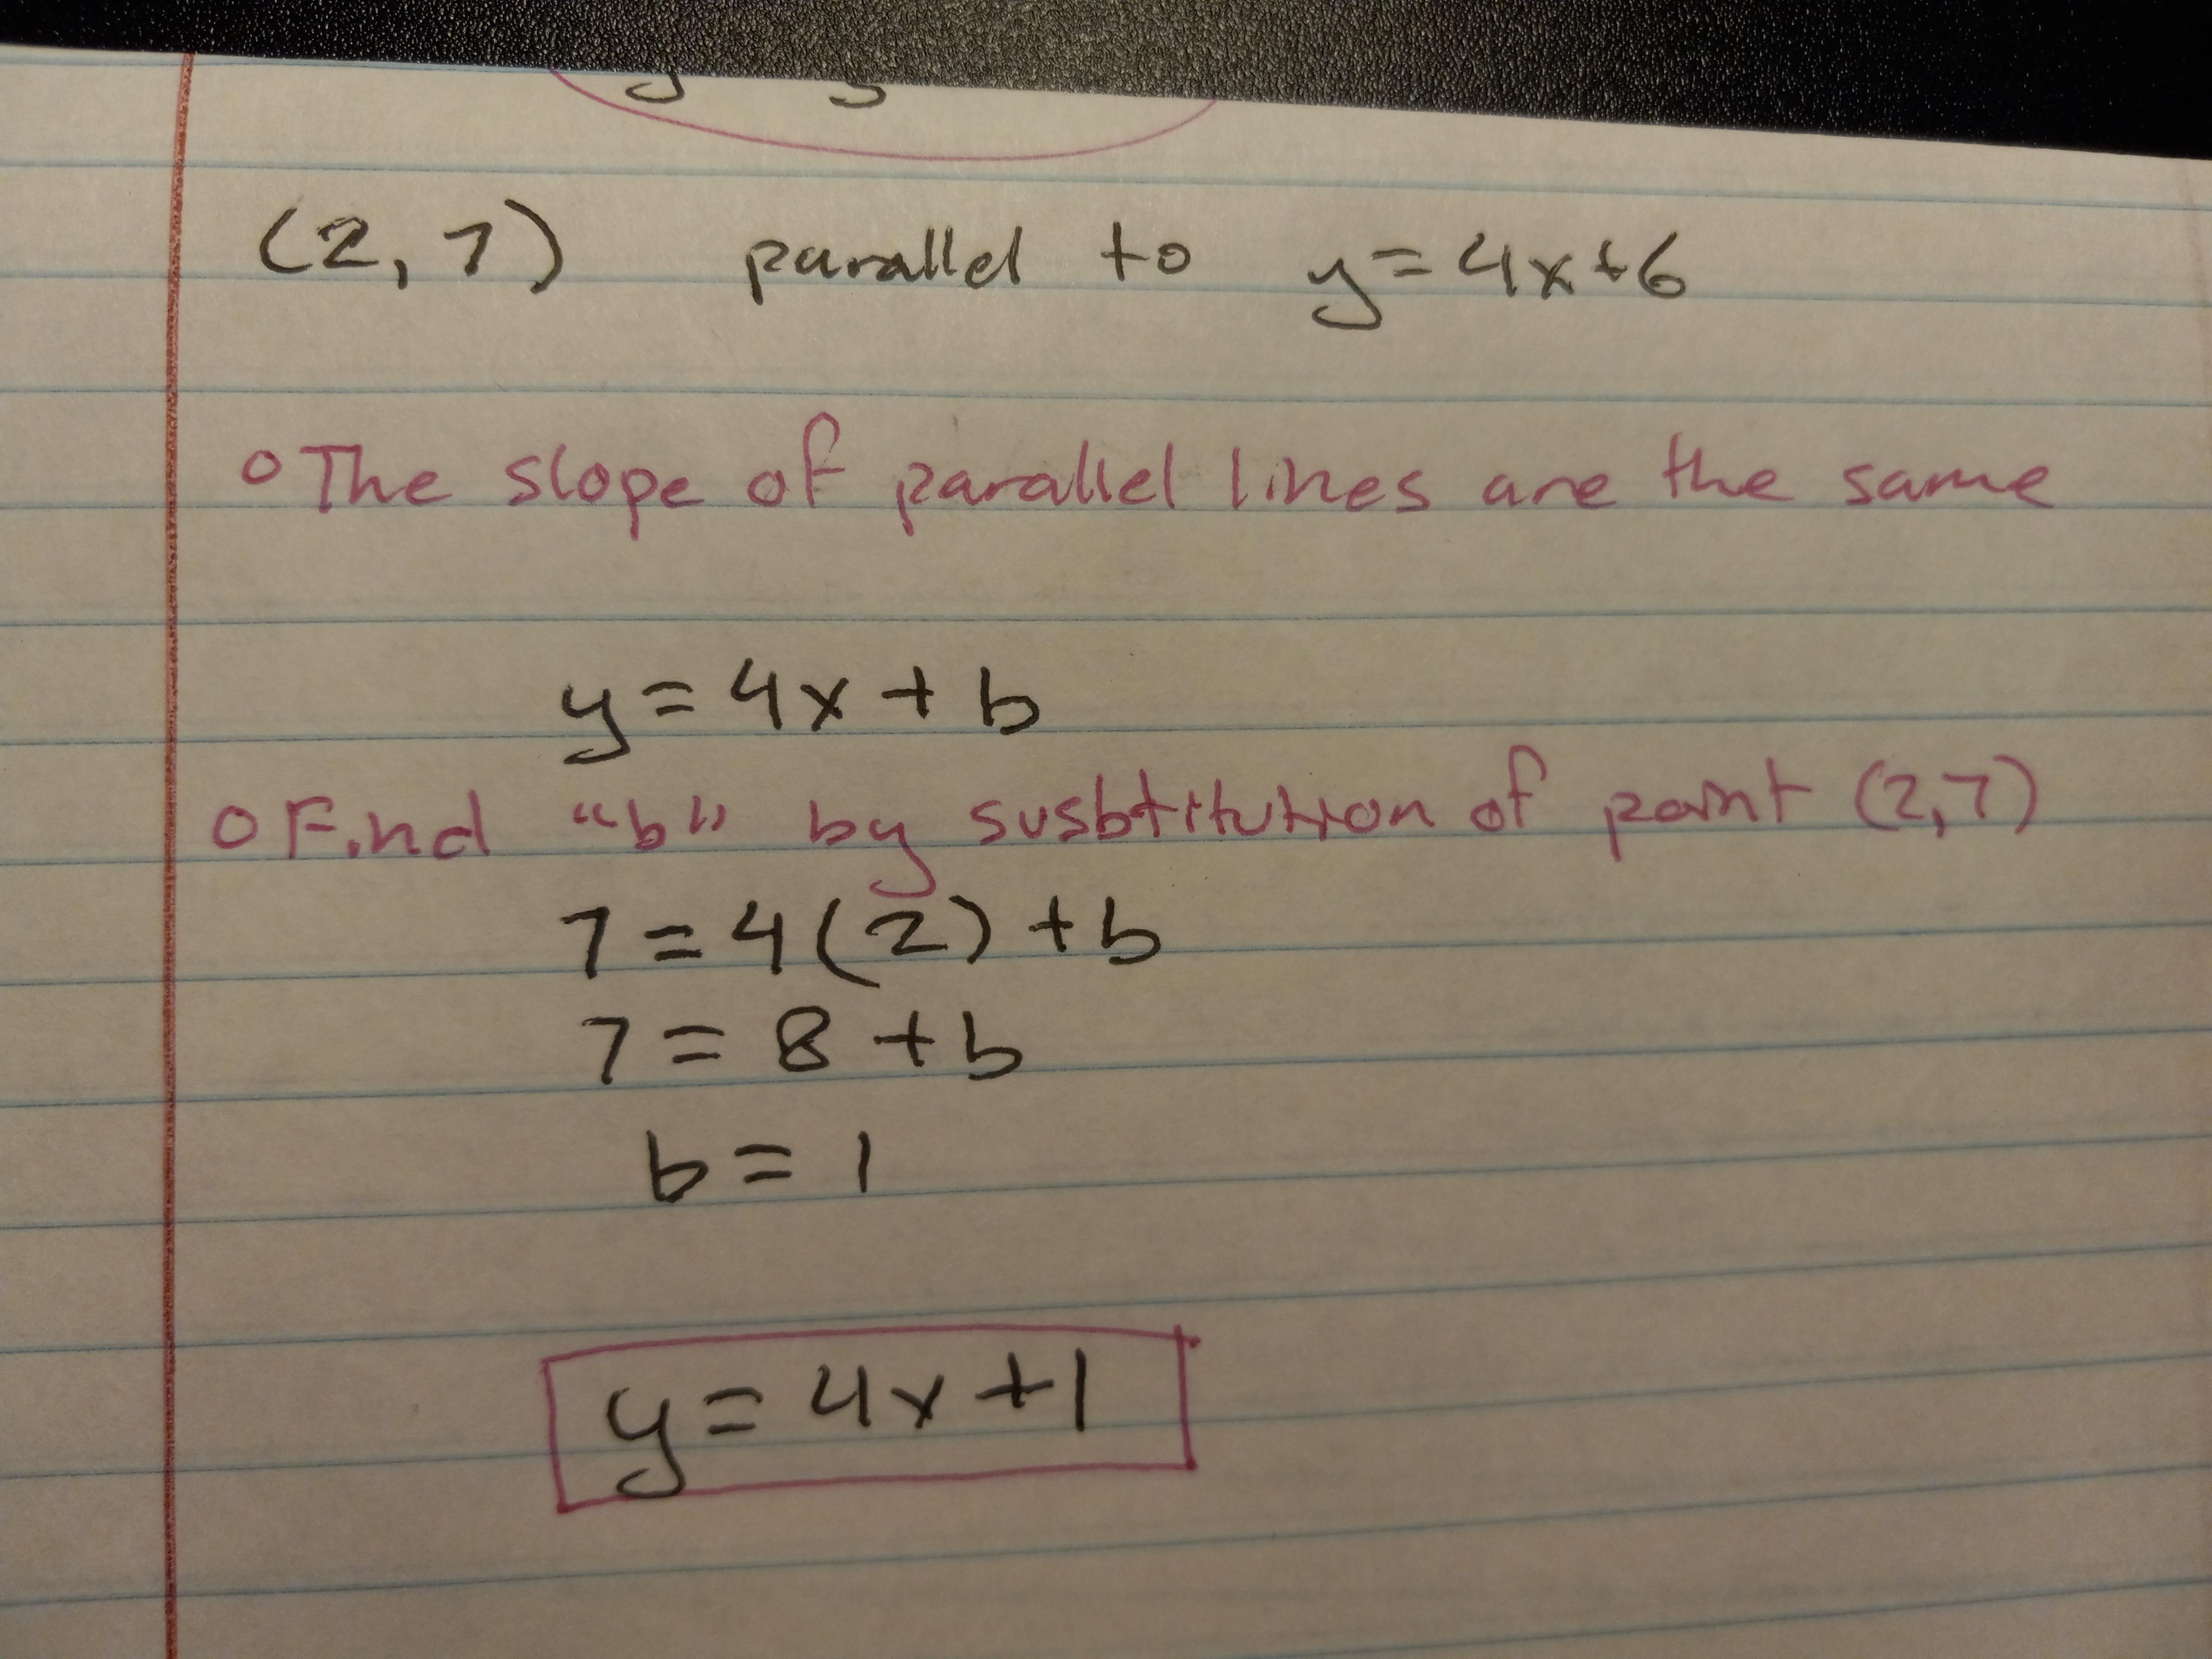 (2,7) parallel to y=4x+6
The slope of parallel lines are the same
y=4x+b
Find "b" by susbtitution of point (2,7)
7=4(2)+b
7=8+b
b=1
y=4x+1